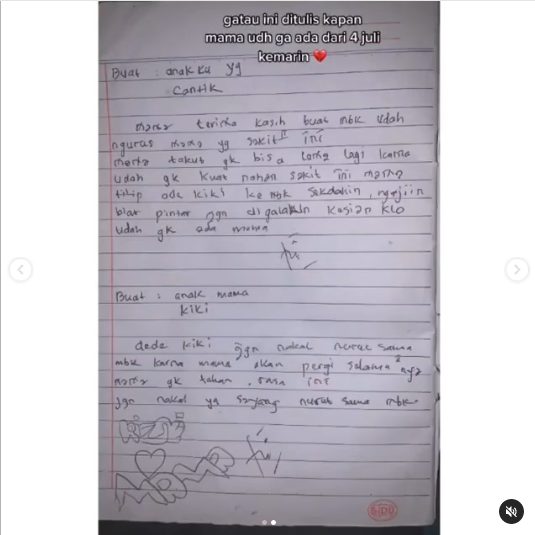 gatau ini ditulis kapan
mama udh ga ada dari 4 juli
kemarin 💔
Buat : anakku yg
Cantik
mama terima kasih buat mbk udah
ngurus mama yg sakit" ini
mama takut gk bisa lama lagi karna
udah gk kuat nahan sakit ini mama
titip ade kiki ke mbk sekolahin, ngajiin
biar pinter jgn di galakin kasian klo
udah gk ada mama
Buat : anak mama
kiki
dede kiki jgn nakal nurut sama
mbk karna mama akan pergi selama2 nya
mama gk tahan, rasa ini
jgn nakal ya sayang nurut sama mbk
MAMA